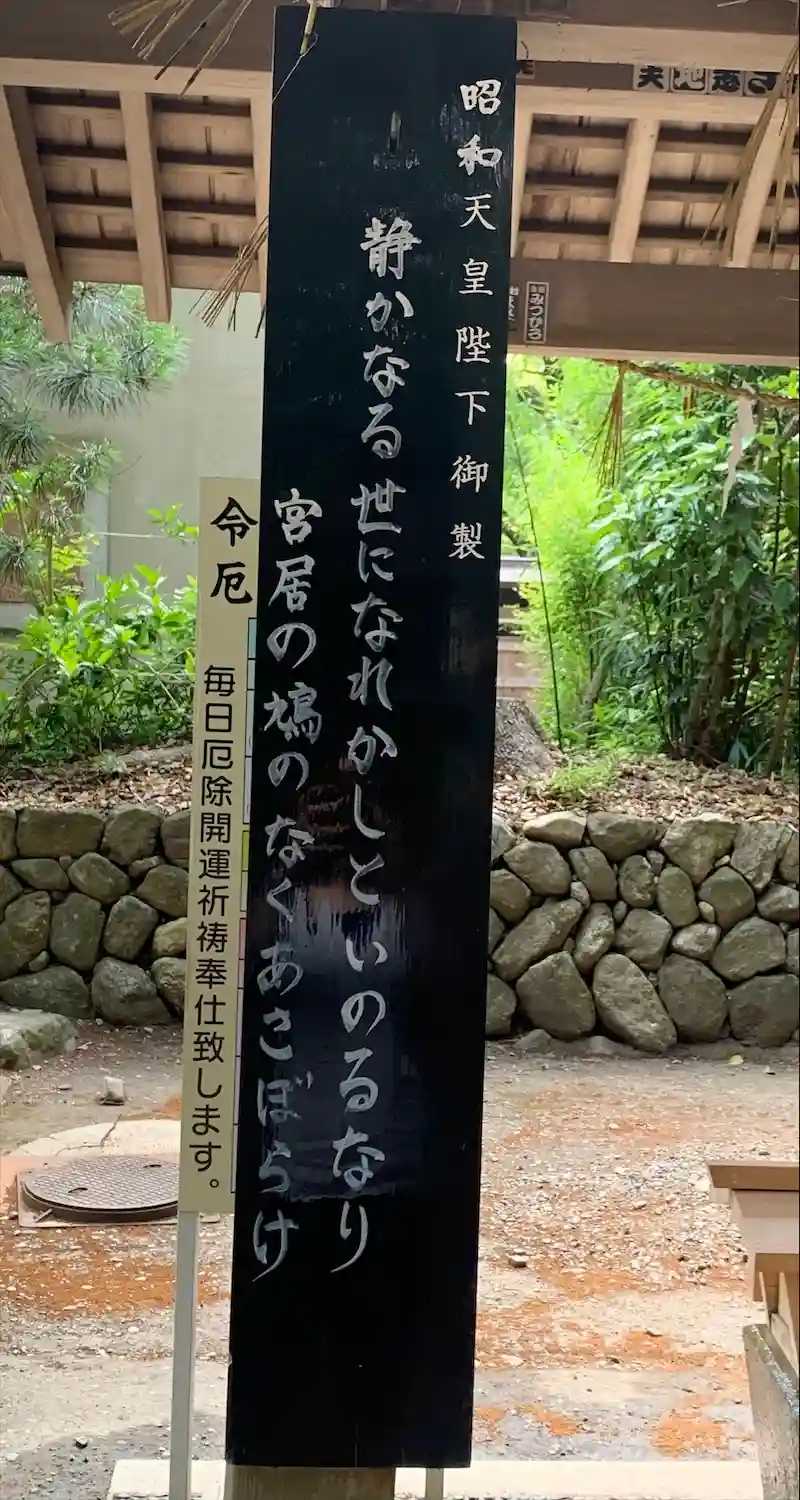 昭和天皇陛下御製
静かなる世になれかしといのるなり
宮居の鳩のなくあさぼらけ
令厄
毎日厄除開運祈祷奉仕致します。
みつひろ